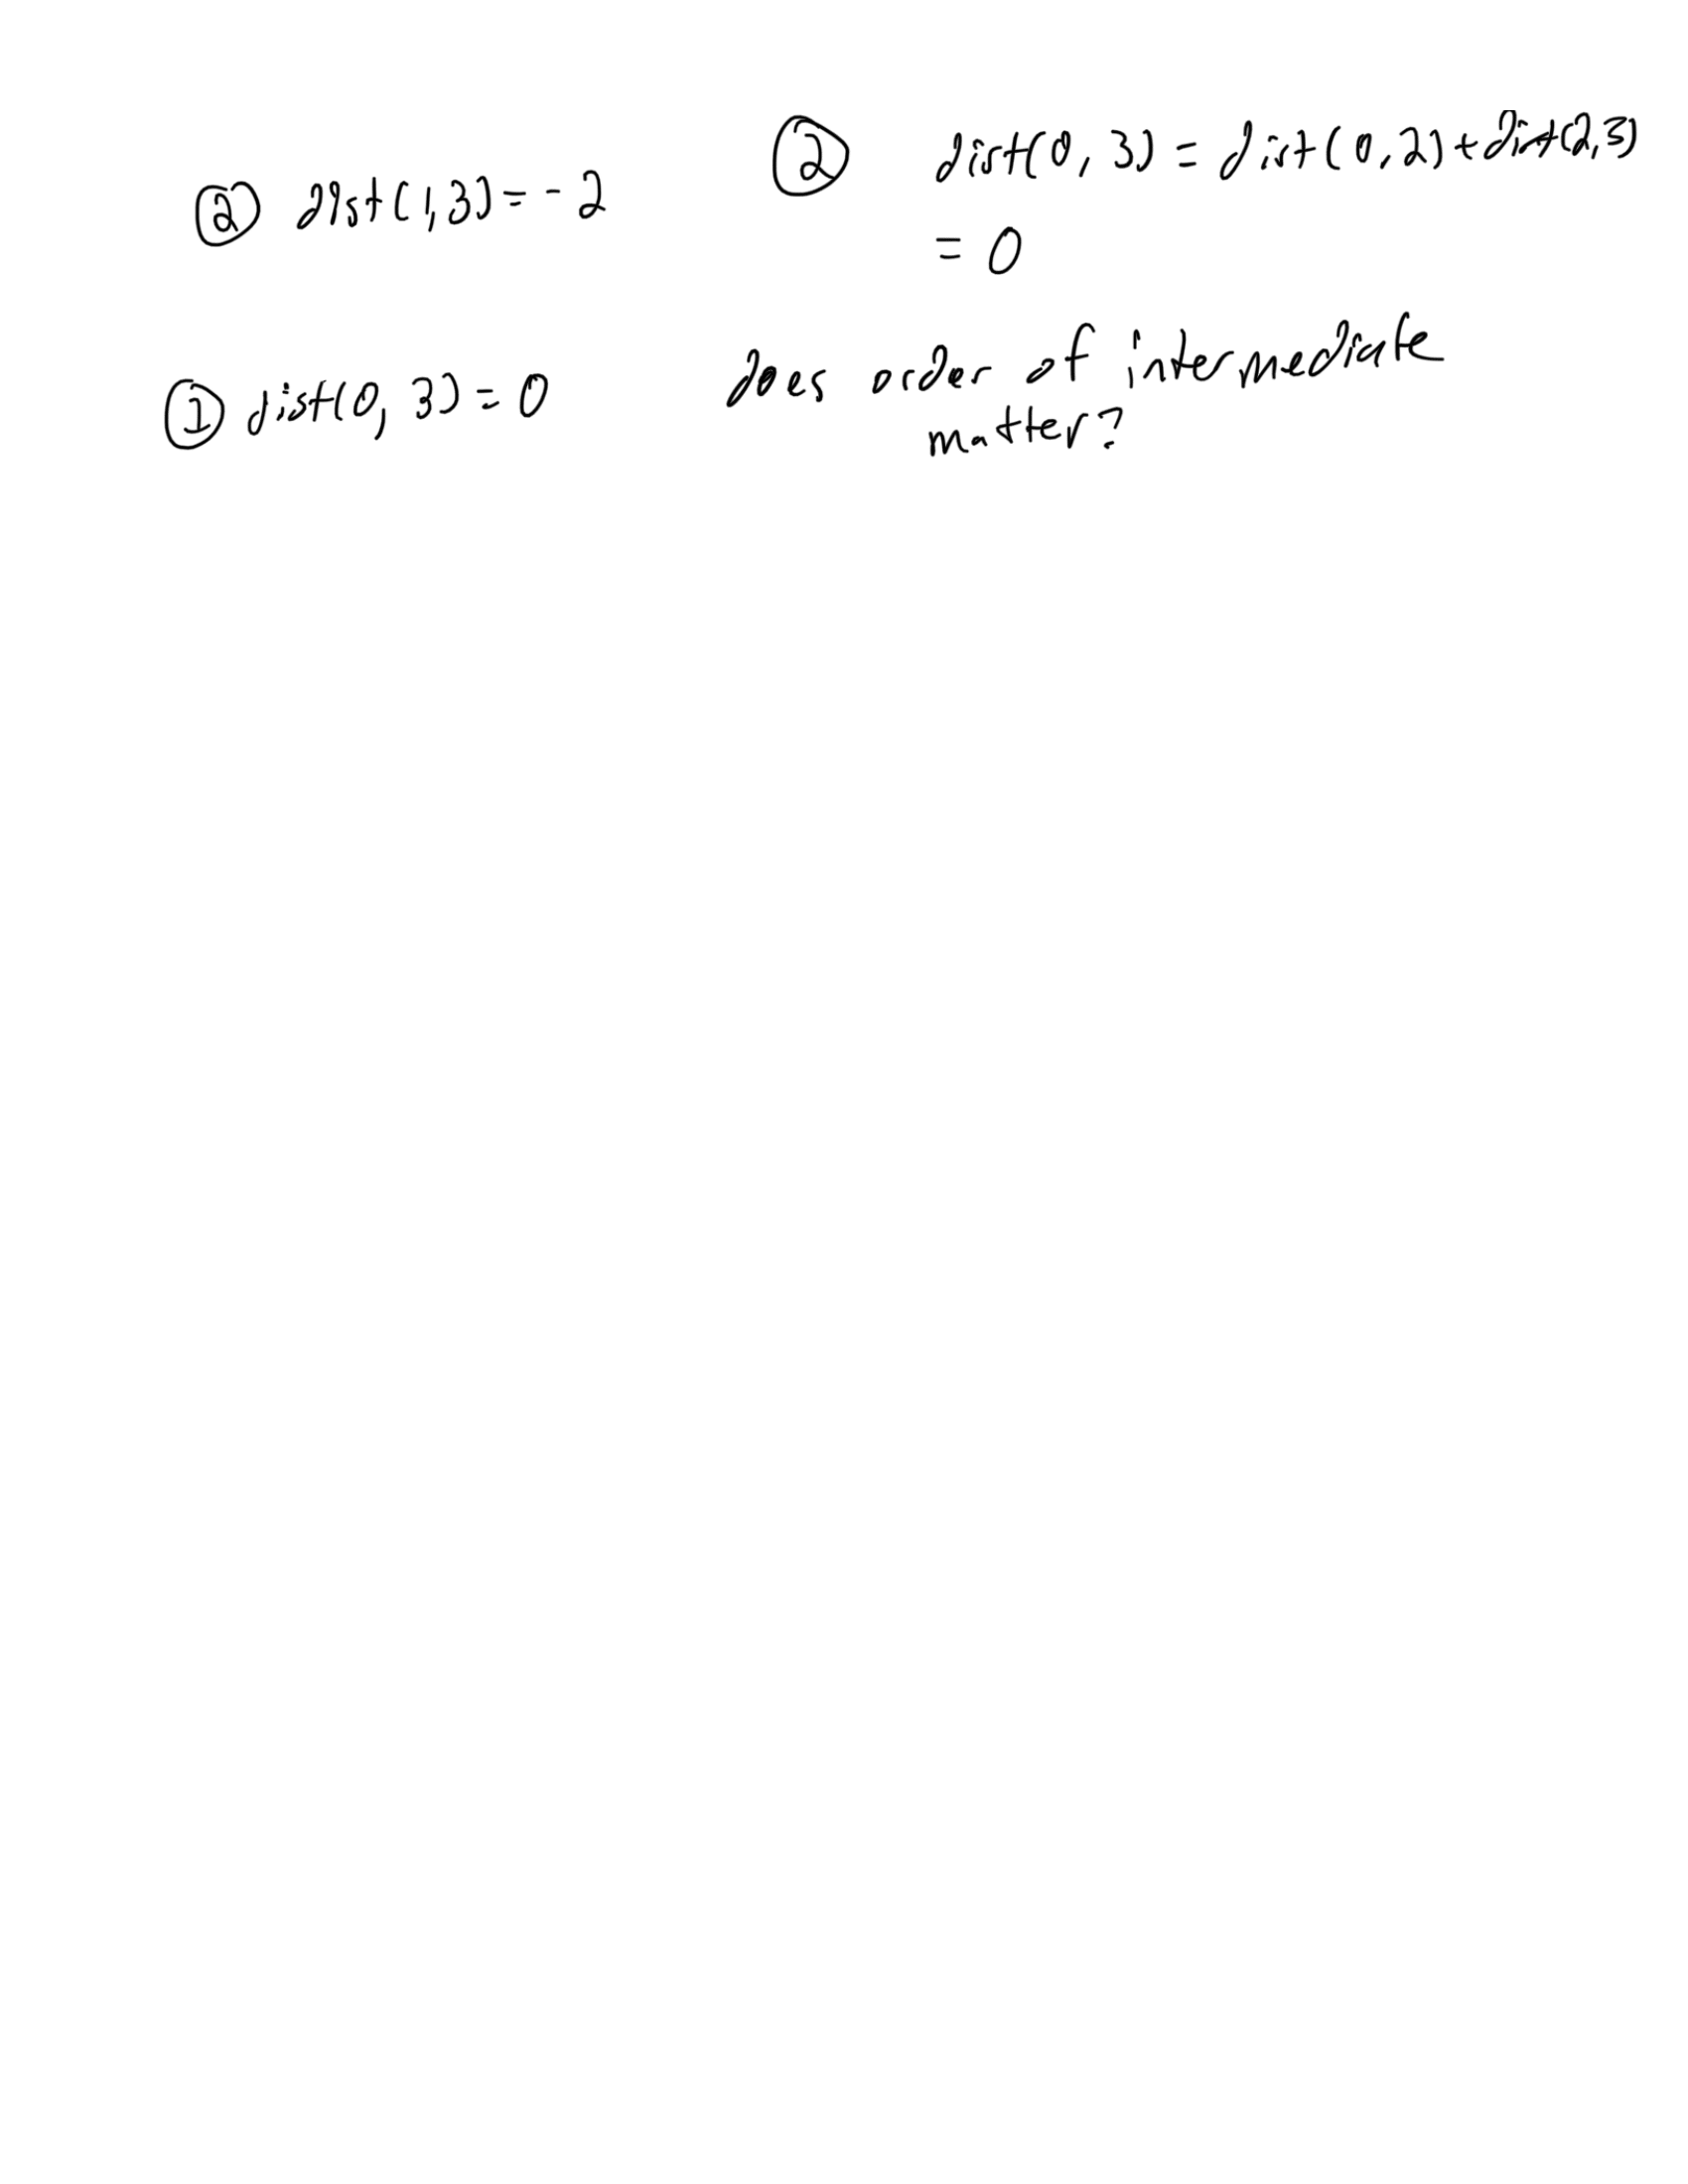 ② dist(1,3) = -2
① dist(0,3) = 0
② dist(0,3) = dist(0,2)+dist(2,3)
= 0
does order of intermediate
matter?